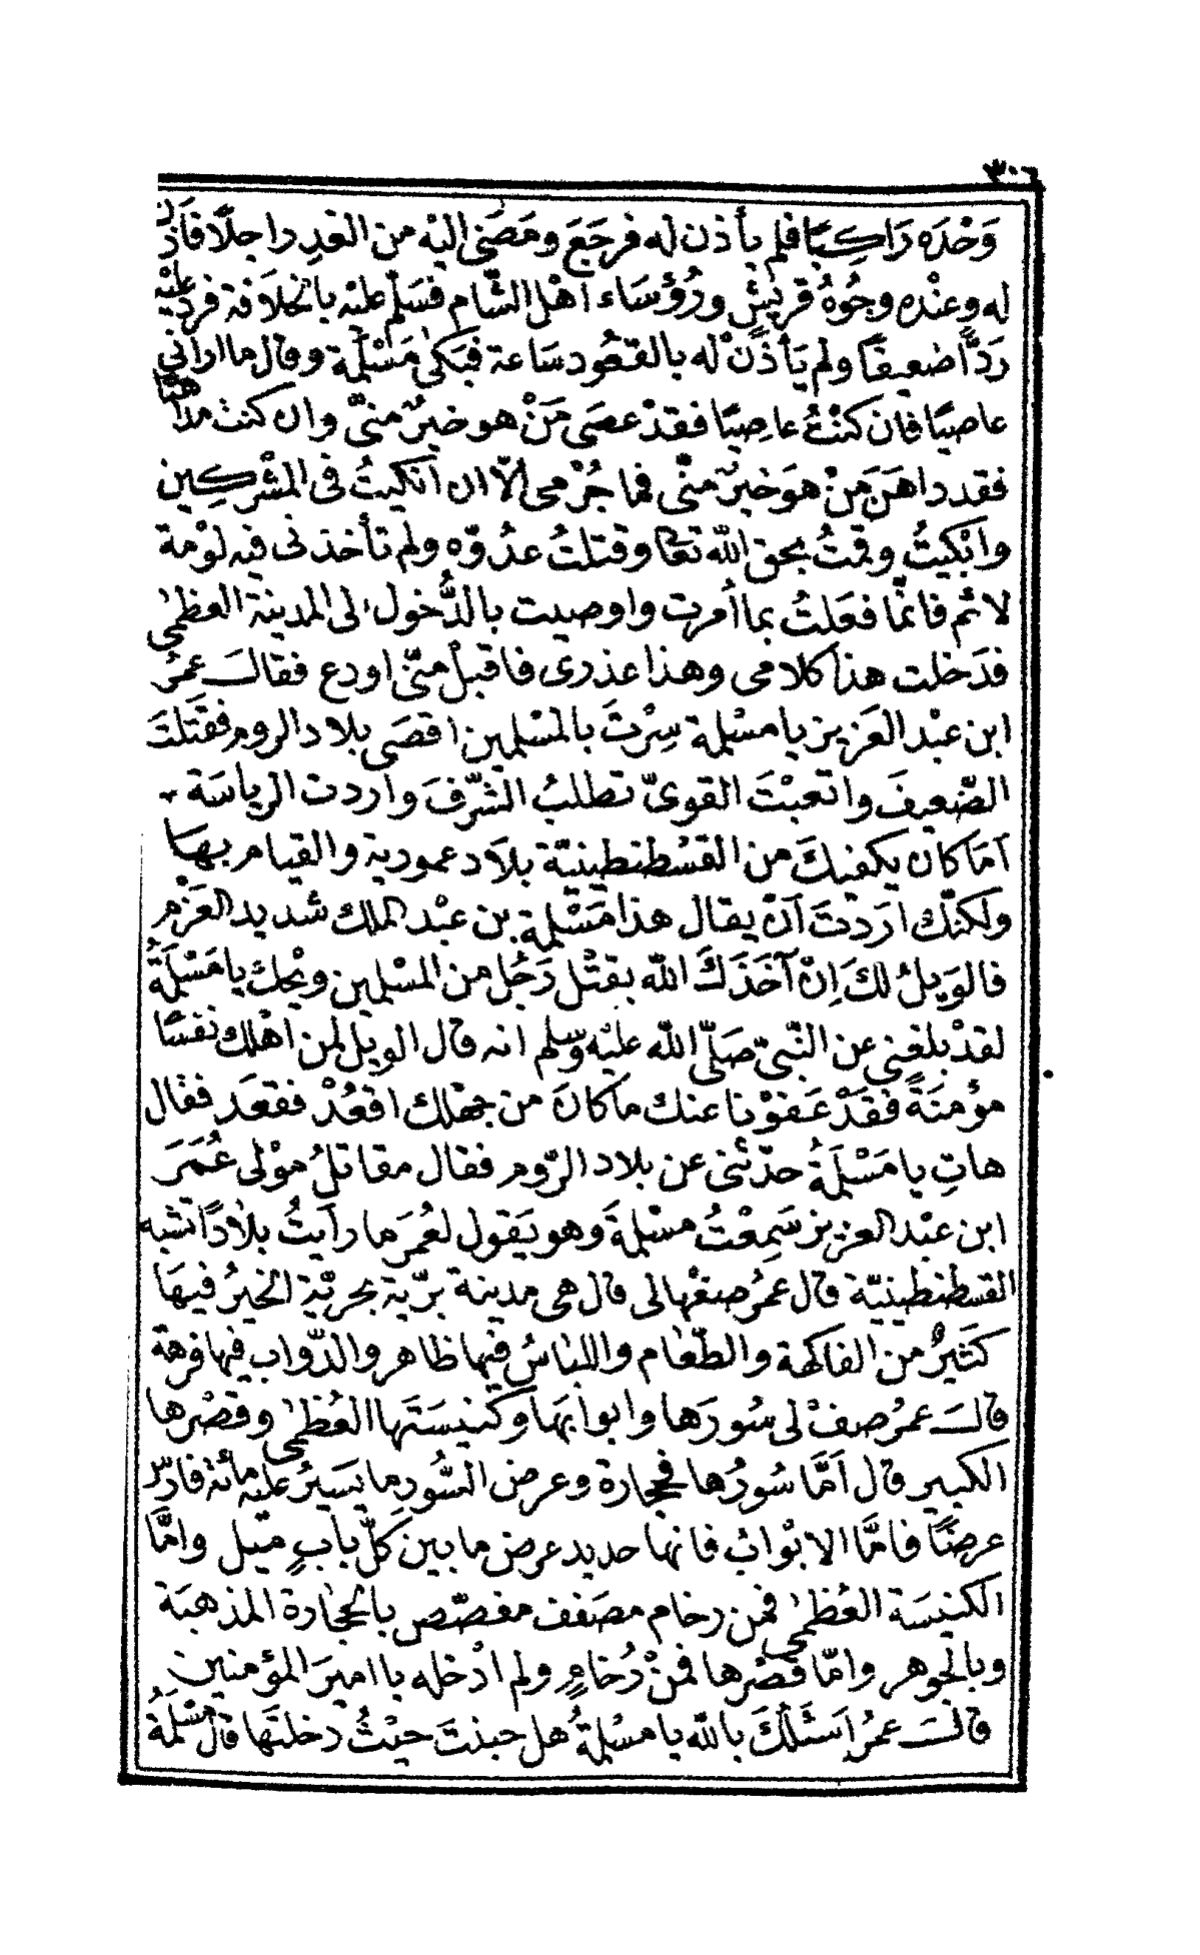 ٣٠٦
وَحْدَه رَاكِبًا فلم يأذن له فرجَعَ ومَضَى اليْه من الغدِ راجلًا فأذن
له وعنْده وجُوهُ قريشٍ ورُؤسَاء اهْل الشّام فسَلّم عليْه بالخلَافة فرد عليْه
رَدًّا ضعيفًا ولم يَأذَنْ له بالقعُود سَاعة فبَكى مَسْلمة وقال ما ارانى
عاصيًا فان كنْتُ عاصِيًا فقدْ عصَى مَنْ هو خيرٌ منّى وان كنت مداهنًا
فقد داهَنَ مَنْ هوَ خيرٌ منّى فما جُرْمى الّا ان انكيتُ فى المشْركين
وابْكيتُ وقمتُ بحق الله تعا وقتلتُ عدُوّه ولم تأخذنى فيه لوْمة
لائم فانّما فعَلتُ بما أمرت واوصيت بالدُّخول الى المدينة العظمى
فدَخلت هذا كلامى وهذا عذرى فاقبلْ منّى او دع فقالـ عمرُ
ابن عبْد العَزيز يا مسْلمة سِرْتَ بالمسْلمين اقصَى بلاد الروم فقتَلتَ
الضّعيفَ واتعبْتَ القوىّ تطلبُ الشّرفَ واردت الرياسَة
امَا كان يكفيكَ من القسْطنطينيّة بلَاد عمورية والقيام بهَا
ولكنّك ارَدْتَ اَنْ يقال هذا مَسْلمة بن عبْد الملك شديد العَزْم
فالوَيلُ لكَ اِنْ آخَذَكَ الله بقتْل رَجُل من المسْلمين ويْحك يا مَسْلَمَةُ
لقدْ بلغنى عن النّبىّ صَلّى الله عليْه وسلم انه قال الويل لمن اهْلك نفسًا
مؤمنَةً فقَدْ عَفوْنا عنك ما كانَ من جهْلك اقعُدْ فقعَد فقال
هاتِ يا مَسْلَمَةُ حدّثنى عن بلاد الرّوم فقال مقاتلُ موْلى عُمَرَ
ابن عبْد العزيز سَمِعْتُ مسْلمةَ وهو يَقول لعُمَرَ ما رأيتُ بلادًا تشبه
القسطنطينيّة قال عمرُ صفْها لى قال هى مدينة برّية بحريّة الخيرُ فيهَا
كثيرٌ من الفاكهة والطّعام واللباسُ فيها ظاهر والدّواب فيها فرهة
قالـ عمرُ صفْ لى سُورَها وابوابهَا وكنيسَتَها العُظمى وقصْرها
الكبير قال اَمَّا سُورُها فحجارة وعرض السُّورِ ما يَسيرُ عليه مائة فارس
عرضًا فامَّا الابْوابُ فانها حديد عرض ما بين كلّ بابٍ ميل وامَّا
الكنيسَة العُظمى فمن رخام مصَفف مفصّص بالحجارة المذهبَة
وبالجوهر وامّا قصْرها فمنْ رُخامٍ ولم ادْخله يا اميرَ المؤمنين
قالـ عمرُ اَسْئَلكَ بالله يا مسْلمةُ هل جبنتَ حيْثُ دخلتَها قال مسْلمَةُ